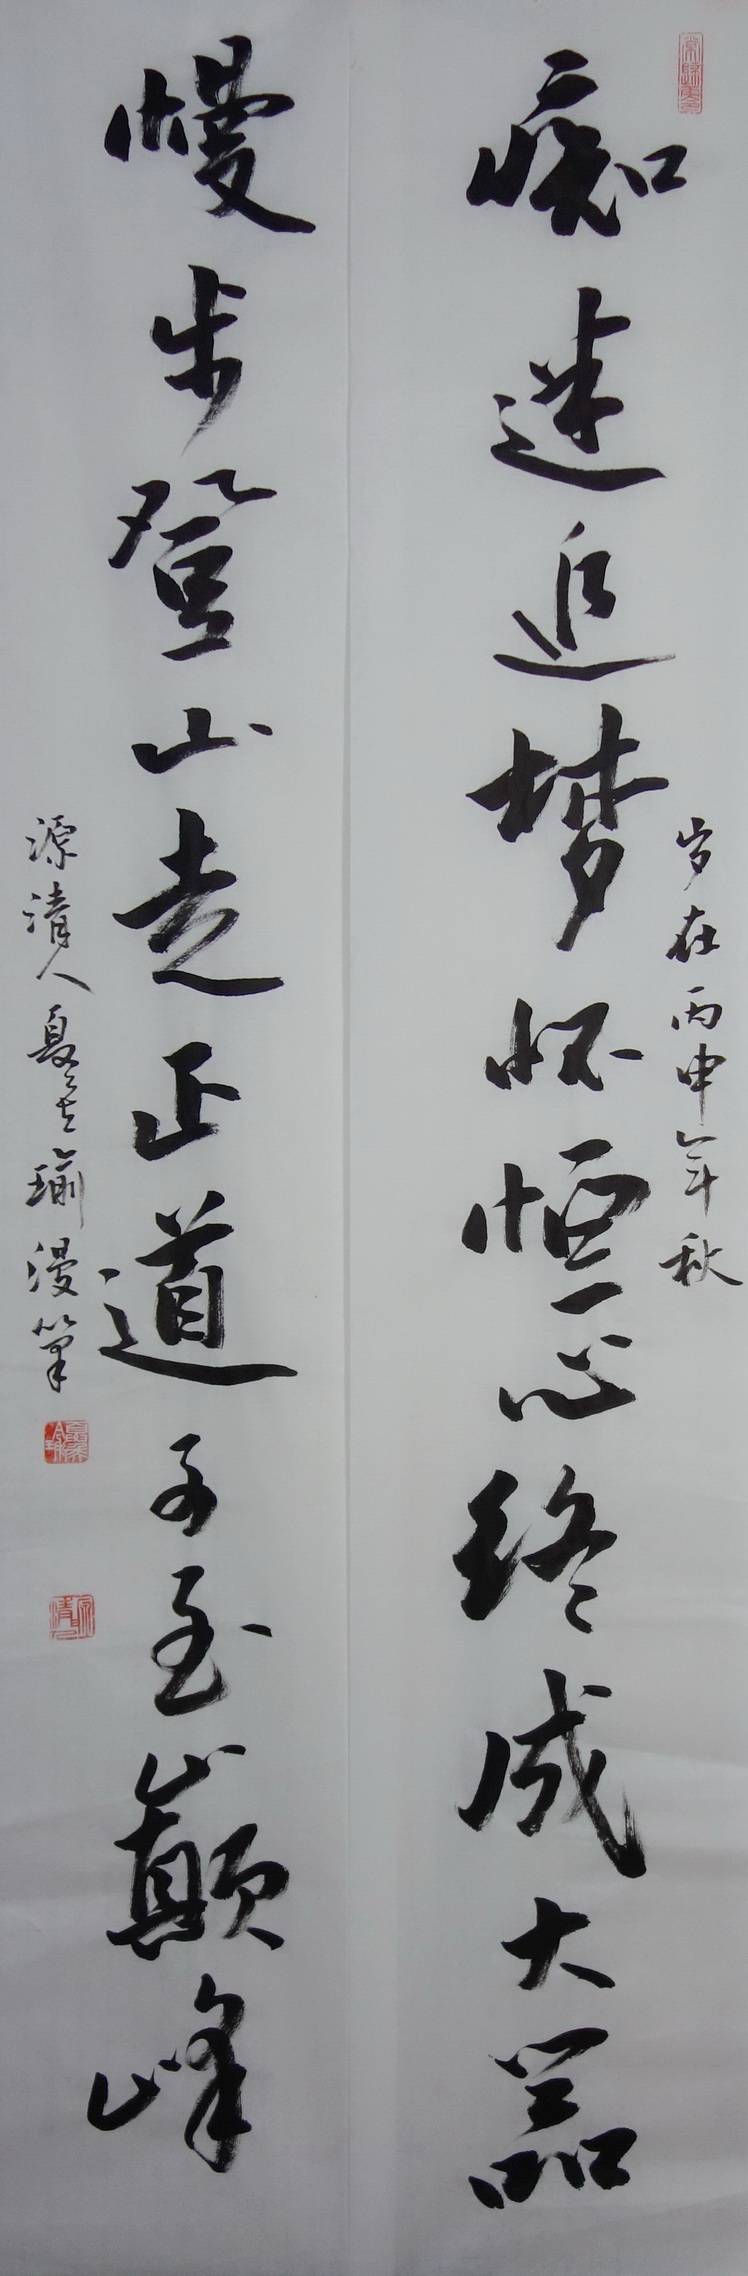 岁在丙申年秋
痴迷追梦怀恒心终成大器
慢步登山走正道方至巅峰
源清人夏瑜漫笔